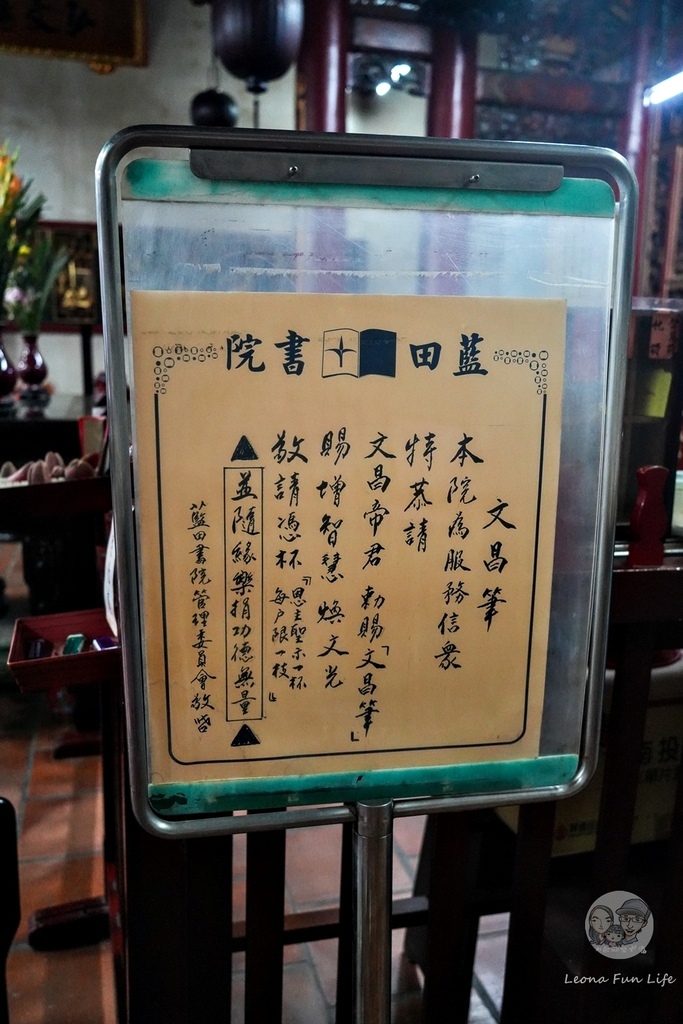 藍田書院
文昌筆
本院為服務信眾
特恭請
文昌帝君 勅賜「文昌筆」
賜增智慧 煥文光
敬請憑杯「恩主聖示一杯
每戶限一枝」
並隨緣樂捐功德無量
藍田書院管理委員會敬啓
南投
Leona Fun Life